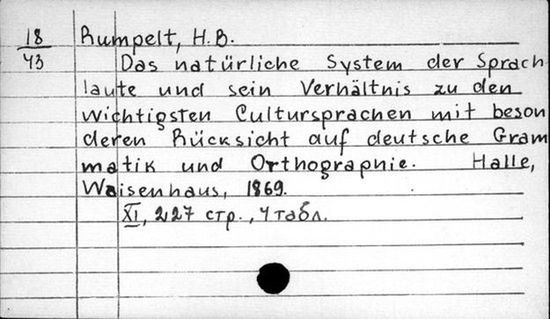 18
43
Rumpelt, H.B.
Das natürliche System der Sprach
laute und sein Verhältnis zu den
wichtigsten Cultursprachen mit beson
deren Rücksicht auf deutsche Gram
matik und Orthographie. Halle,
Waisenhaus, 1869.
XI, 227 стр., 4 табл.